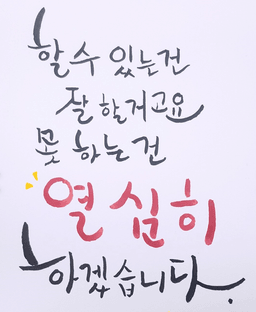 할 수 있는건
잘 할거고요
못 하는건
열심히
하겠습니다.